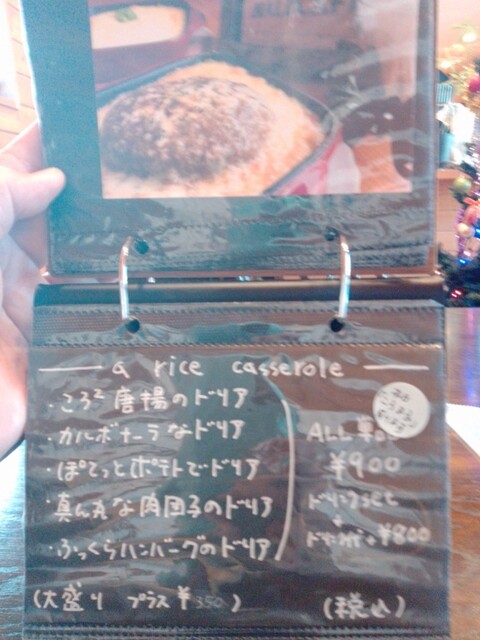 a rice casserole
・ころ²唐揚のドリア
・カルボナーラなドリア
・ぽてっとポテトでドリア
・真ん丸な肉団子のドリア
・ふっくらハンバーグのドリア
ALL 単品
¥900
ドリンクset
+¥800
(大盛り プラス¥350)
(税込)